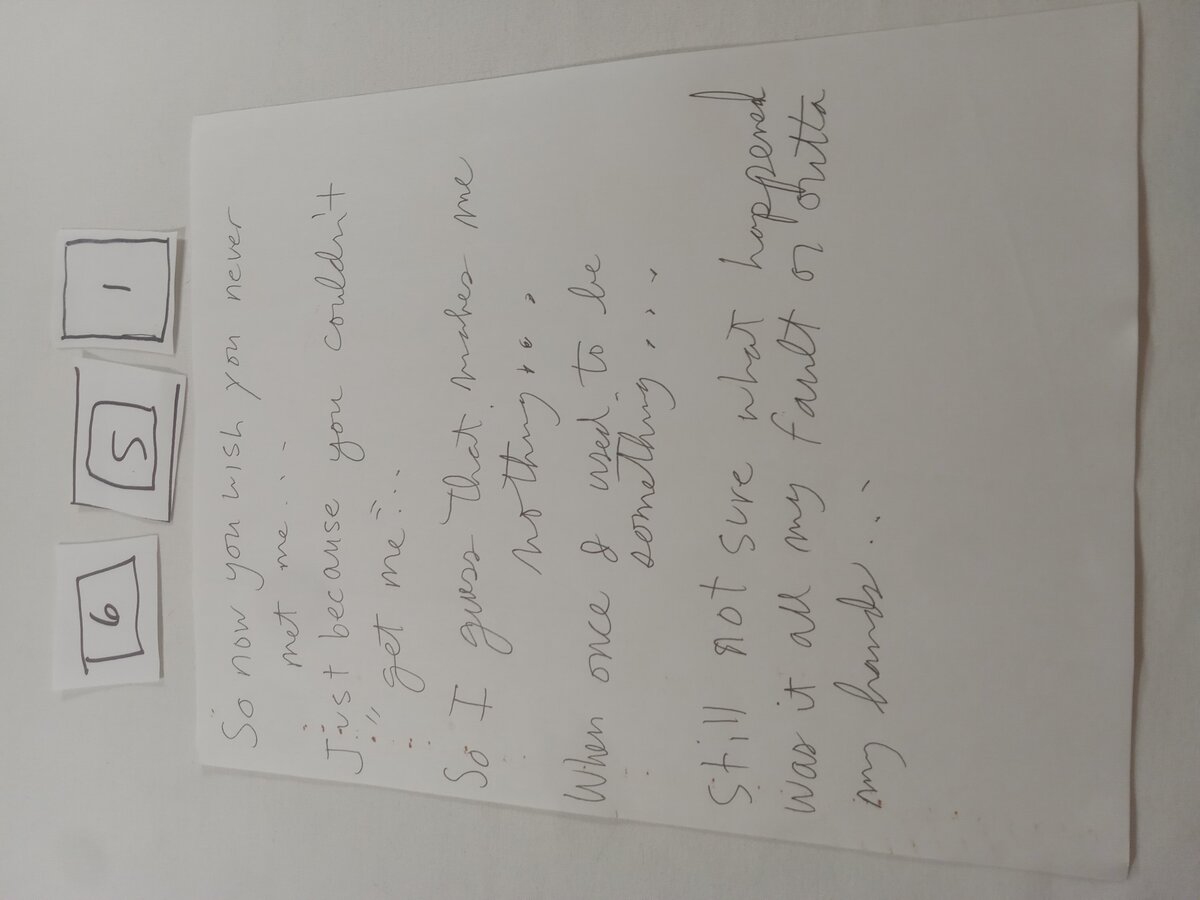 6 5 1
So now you wish you never
met me...
Just because you couldn't
"get me"...
So I guess that makes me
nothing...
When once I used to be
something...
Still not sure what happened
was it all my fault or outta
my hands...